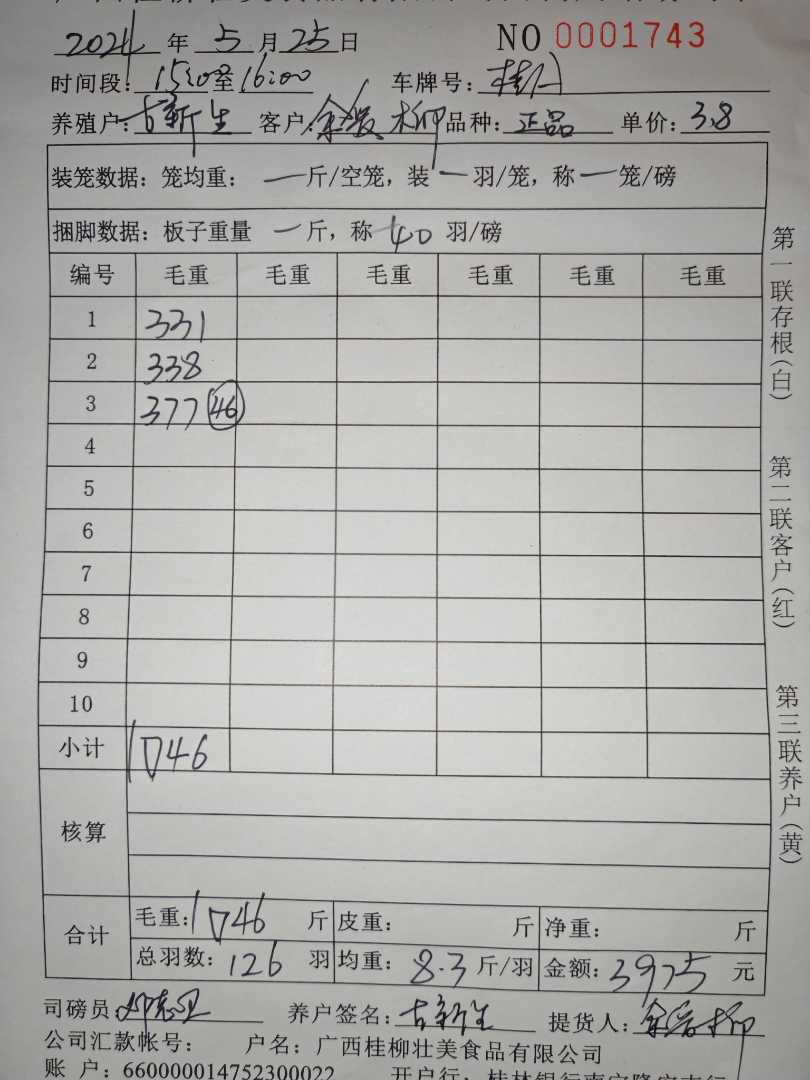 2024 年 5 月 25 日 NO 0001743
时间段: 15:00 至 16:00 车牌号: 桂
养殖户: 古新生 客户: 柳 品种: 正品 单价: 3.8
装笼数据: 笼均重: 一 斤/空笼, 装 一 羽/笼, 称 一 笼/磅
捆脚数据: 板子重量 一 斤, 称 40 羽/磅
编号 毛重 毛重 毛重 毛重 毛重 毛重
1 331
2 338
3 377 46
4
5
6
7
8
9
10
小计 1046
核算
合计 毛重: 1046 斤 皮重: 斤 净重: 斤
总羽数: 126 羽 均重: 8.3 斤/羽 金额: 3975 元
司磅员: 养户签名: 古新生 提货人: 柳
公司汇款帐号: 户名: 广西桂柳壮美食品有限公司
账 户: 660000014752300022 开户行: 桂林银行南宁隆安支行
第一联存根(白) 第二联客户(红) 第三联养户(黄)